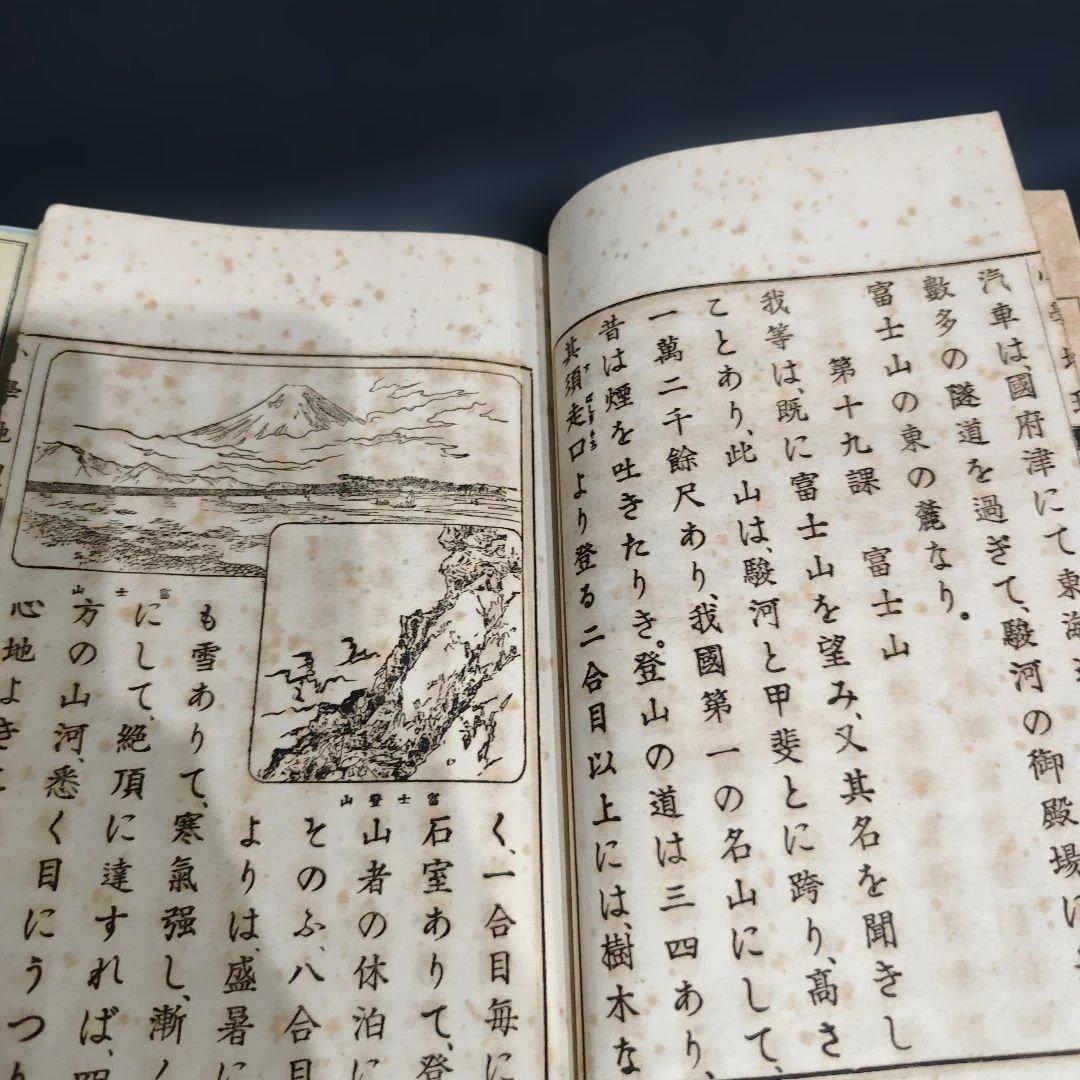 汽車は、國府津にて東海
數多の隧道を過ぎて、駿河の御殿場に
富士山の東の麓なり。
第十九課　富士山
我等は、既に富士山を望み、又其名を聞きし
ことあり、此山は、駿河と甲斐とに跨り、高さ
一萬二千餘尺あり、我國第一の名山にして、
昔は煙を吐きたりき。登山の道は三四あり、
其須走口より登る二合目以上には、樹木な
富士山
富士登山
く、一合目每に
石室ありて、登
山者の休泊に
そのふ、八合目
よりは、盛暑に
も雪ありて、寒氣强し、漸く
にして、絶頂に達すれば、四
方の山河、悉く目にうつり
心地よき